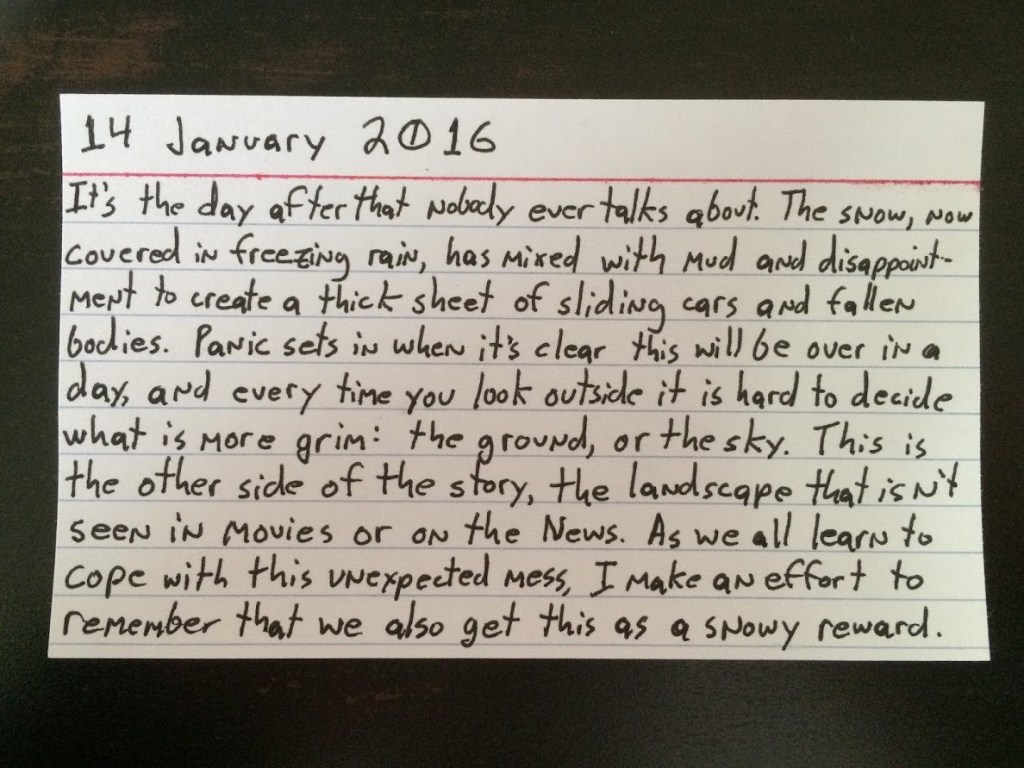 14 January 2016
It's the day after that nobody ever talks about. The snow, now
covered in freezing rain, has mixed with mud and disappoint-
ment to create a thick sheet of sliding cars and fallen
bodies. Panic sets in when it's clear this will be over in a
day, and every time you look outside it is hard to decide
what is more grim: the ground, or the sky. This is
the other side of the story, the landscape that isn't
seen in movies or on the News. As we all learn to
cope with this unexpected mess, I make an effort to
remember that we also get this as a snowy reward.